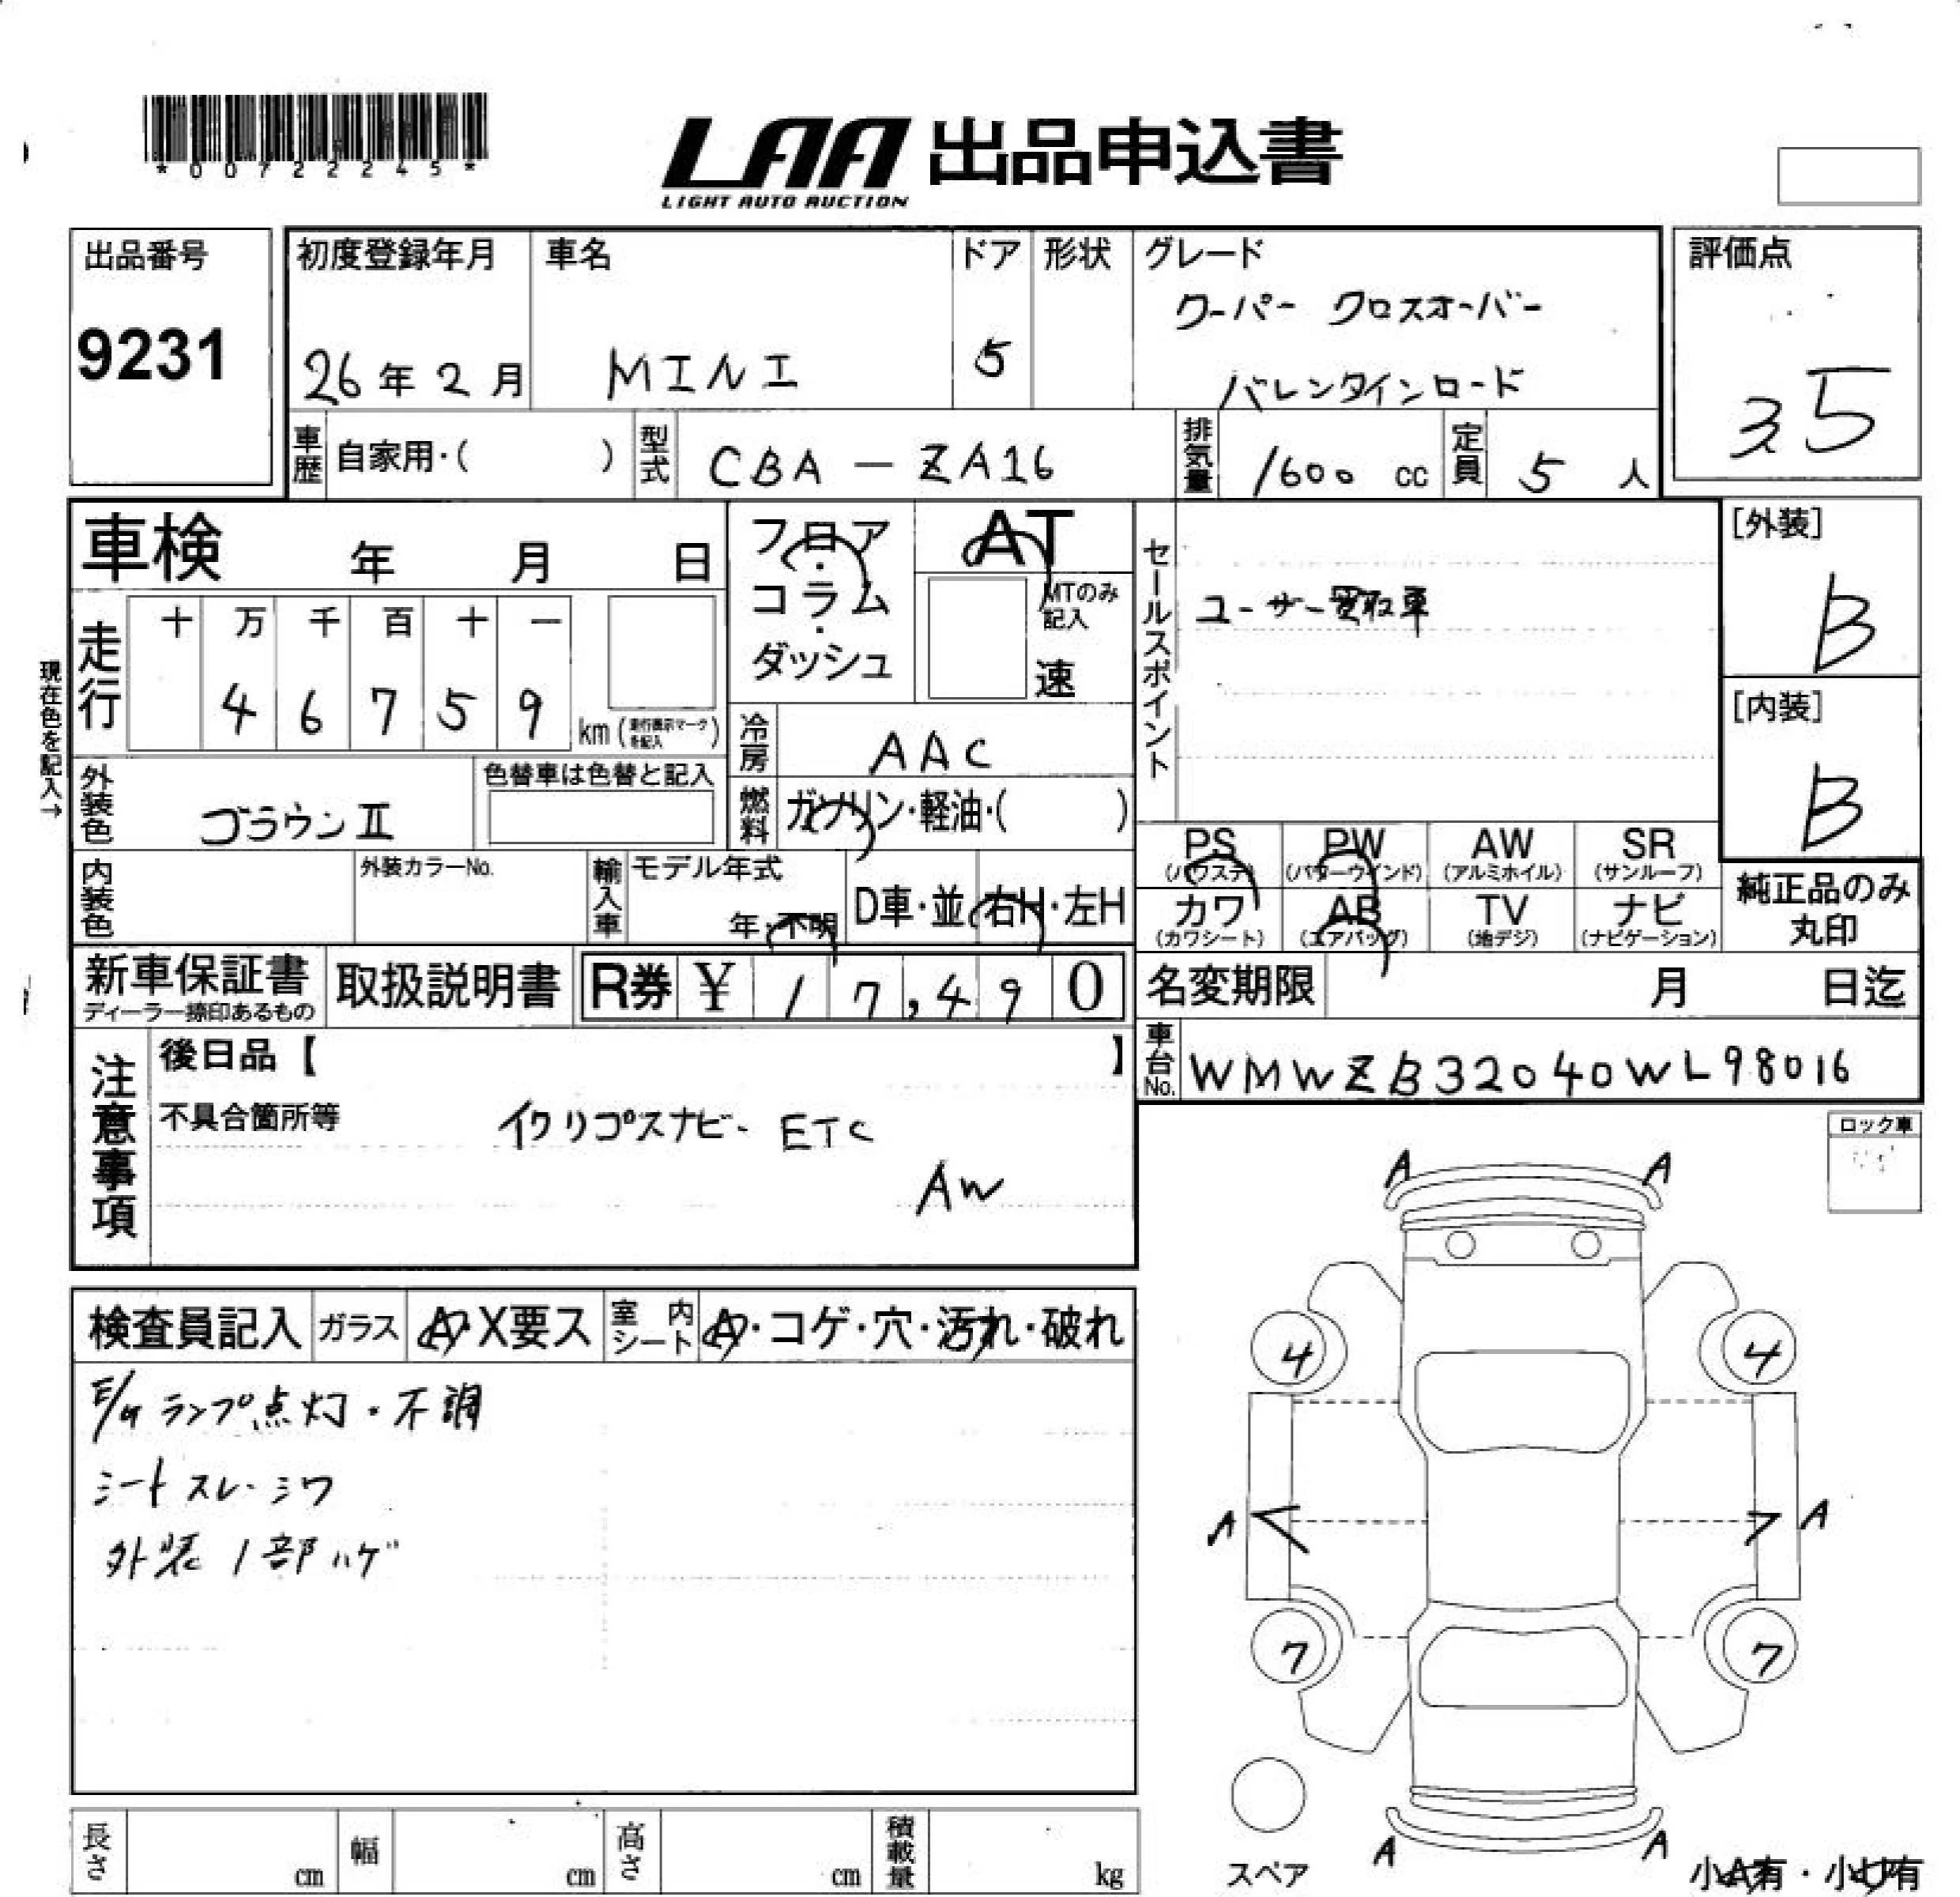 *00722245*
LAA 出品申込書
LIGHT AUTO AUCTION
出品番号
9231
初度登録年月
26年2月
車名
MINI
ドア
5
形状
グレード
クーパー クロスオーバー
バレンタインロード
評価点
3.5
車歴 自家用・( )
型式 CBA-ZA16
排気量 1600 cc
定員 5 人
車検 年 月 日
フロア・コラム・ダッシュ
AT
MTのみ記入
速
セールスポイント
ユーザー買取車
[外装]
B
[内装]
B
現在色を記入→
走行
十 万 千 百 十 一
4 6 7 5 9
km(走行表示マークを記入)
冷房 AAC
外装色 ブラウンII
色替車は色替と記入
燃料 ガソリン・軽油・( )
内装色
外装カラーNo.
輸入車
モデル年式
年・不明
D車・並
右H・左H
PS (パワステ)
PW (パワーウインド)
AW (アルミホイル)
SR (サンルーフ)
カワ (カワシート)
AB (エアバッグ)
TV (地デジ)
ナビ (ナビゲーション)
純正品のみ
丸印
新車保証書
ディーラー捺印あるもの
取扱説明書
R券 ¥ 17,490
名変期限 月 日迄
車台No. WMWZB32040WL98016
注意事項
後日品【 】
不具合箇所等
イクリプスナビ・ETC
AW
ロック車
検査員記入
ガラス
A・X要ス
室内シート
A・コゲ・穴・汚れ・破れ
E/Gランプ点灯・不調
シートスレ・シワ
外装1部ハゲ
A A
4 4
A A
7 7
A A
スペア
小A有・小U有
長さ cm
幅 cm
高さ cm
積載量 kg